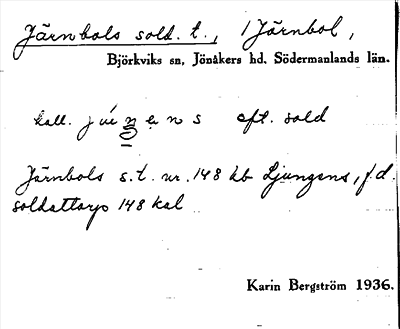 Järnbols sold. t., / Järnbol,
Björkviks sn, Jönåkers hd. Södermanlands län.
kall. eft. sold
Järnbols s.t. nr. 148 kb Ljungens, f.d.
soldattorp 148 kal
Karin Bergström 1936.